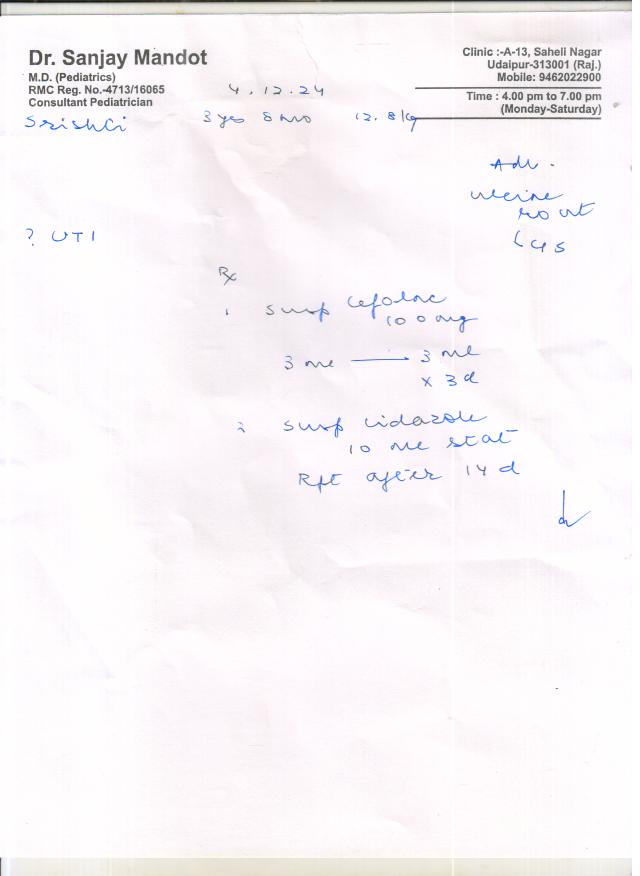 Dr. Sanjay Mandot
M.D. (Pediatrics)
RMC Reg. No.-4713/16065
Consultant Pediatrician
Clinic :-A-13, Saheli Nagar
Udaipur-313001 (Raj.)
Mobile: 9462022900
Time : 4.00 pm to 7.00 pm
(Monday-Saturday)
4.12.24
Srishti 3 yrs 8 mo 12.8 kg
Adv.
urine
rout
C/S
? UTI
Rx
1. susp Cefolac
100 mg
3 ml — 3 ml
x 3 d
2 susp Cidazole
10 ml stat
Rpt after 14 d